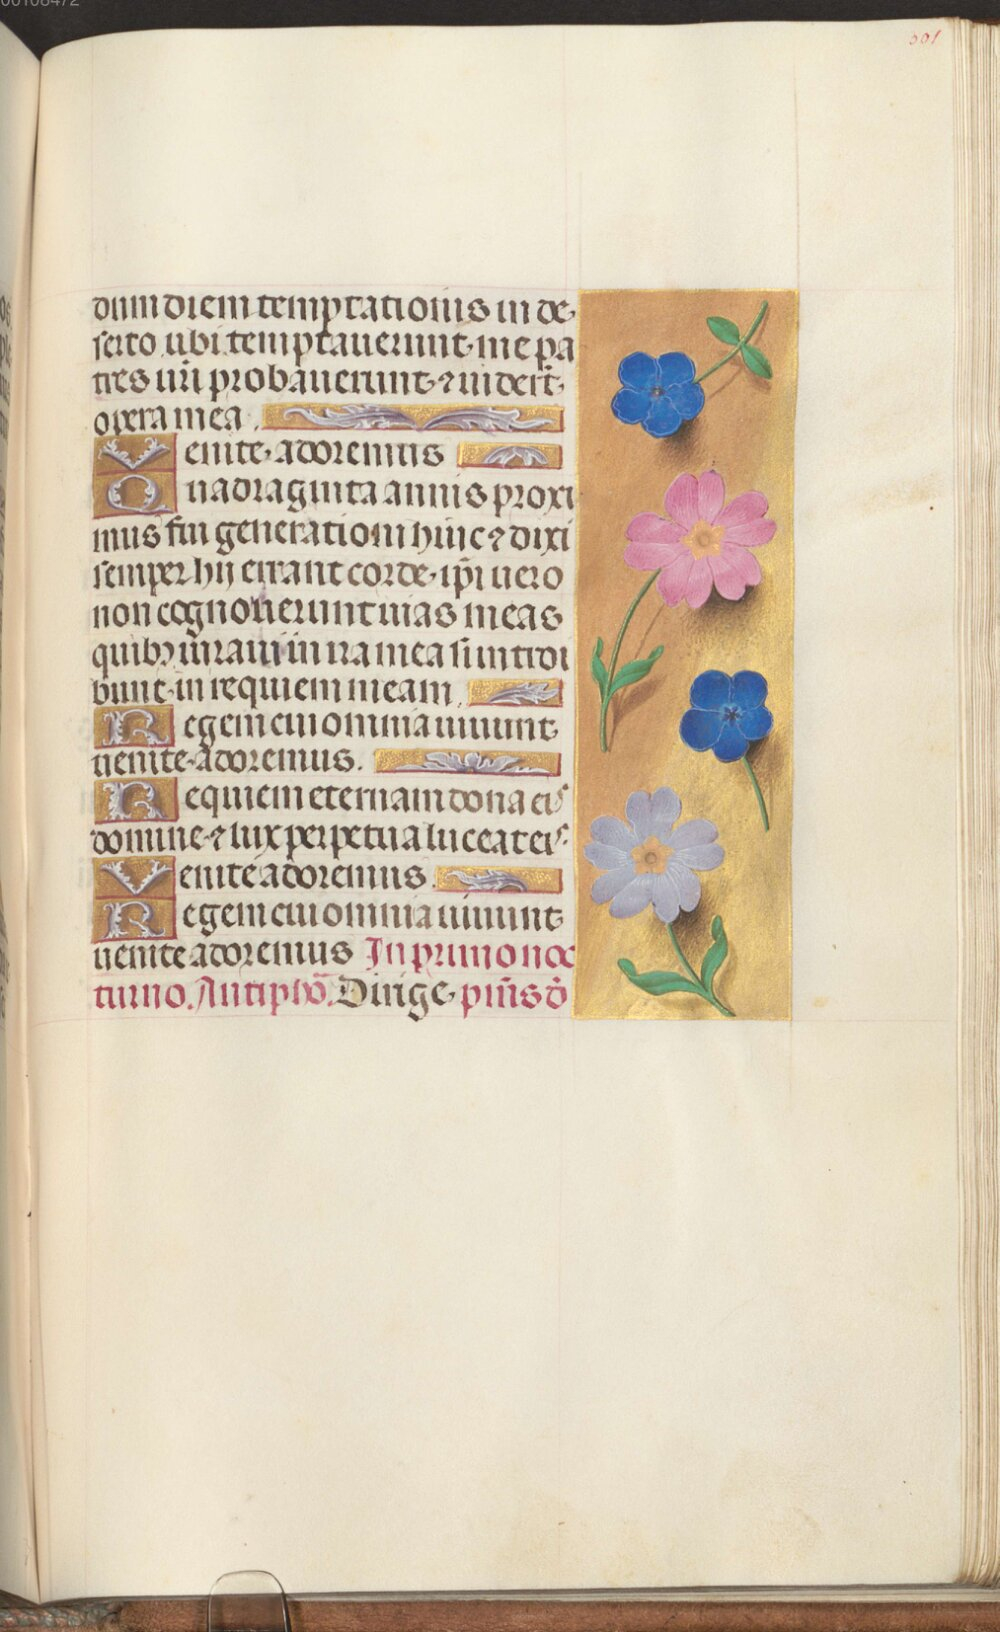 00108472
301
dum diem temptationis in de-
serto ubi temptauerunt me pa
tres vr̄i probauerunt ⁊ viderūt
opera mea.
Uenite adoremus
Quadraginta annis proxi
mus fui generationi huic ⁊ dixi
semper hij errant corde, ip̄i uero
non cognouerunt uias meas
quibꝫ iuraui in ira mea si introi
bunt in requiem meam.
Regem cui omnia uiuunt
uenite adoremus.
Requiem eternam dona eis
domine ⁊ lux perpetua luceat eis.
Uenite adoremus.
Regem cui omnia uiuunt
uenite adoremus In primo noc
turno. Antiphō. Dirige. p̄mus d̄